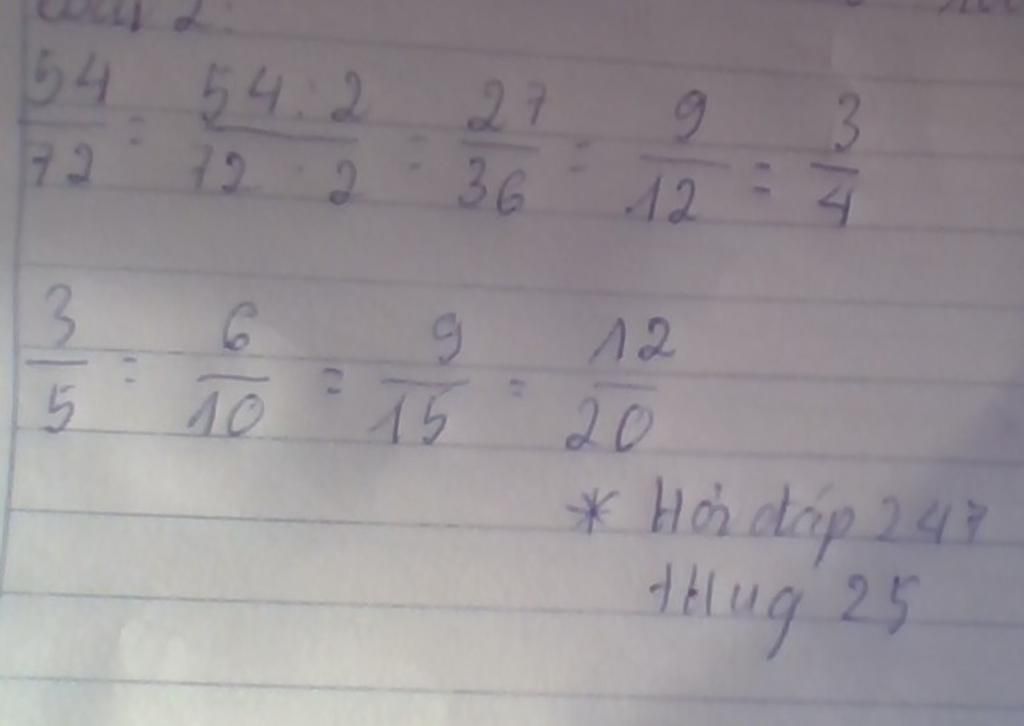 2:
54/72 = 54 : 2/72 : 2 = 27/36 = 9/12 = 3/4
3/5 = 6/10 = 9/15 = 12/20
* Hỏi đáp 247